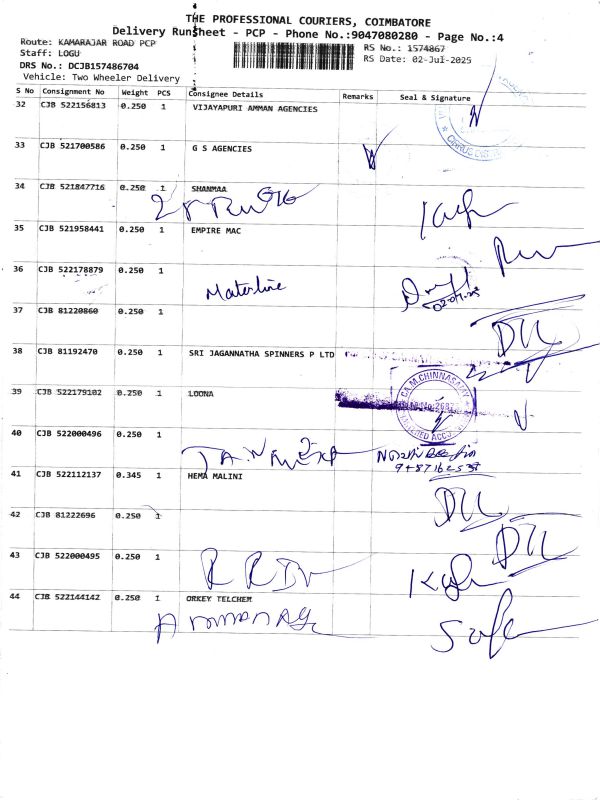 THE PROFESSIONAL COURIERS, COIMBATORE
Delivery Runsheet - PCP - Phone No.:9047080280 - Page No.:4
Route: KAMARAJAR ROAD PCP RS No.: 1574867
Staff: LOGU RS Date: 02-Jul-2025
DRS No.: DCJB157486704
Vehicle: Two Wheeler Delivery
S No Consignment No Weight PCS Consignee Details Remarks Seal & Signature
32 CJB 522156813 0.250 1 VIJAYAPURI AMMAN AGENCIES
33 CJB 521700586 0.250 1 G S AGENCIES
34 CJB 521847716 0.250 1 SHANMAA
35 CJB 521958441 0.250 1 EMPIRE MAC
36 CJB 522178879 0.250 1
Materline
37 CJB 81220860 0.250 1
38 CJB 81192470 0.250 1 SRI JAGANNATHA SPINNERS P LTD
CA. M. CHINNASAMY
39 CJB 522179102 0.250 1 LOONA
40 CJB 522000496 0.250 1
41 CJB 522112137 0.345 1 HEMA MALINI
42 CJB 81222696 0.250 1
43 CJB 522000495 0.250 1
44 CJB 522144142 0.250 1 ORKEY TELCHEM